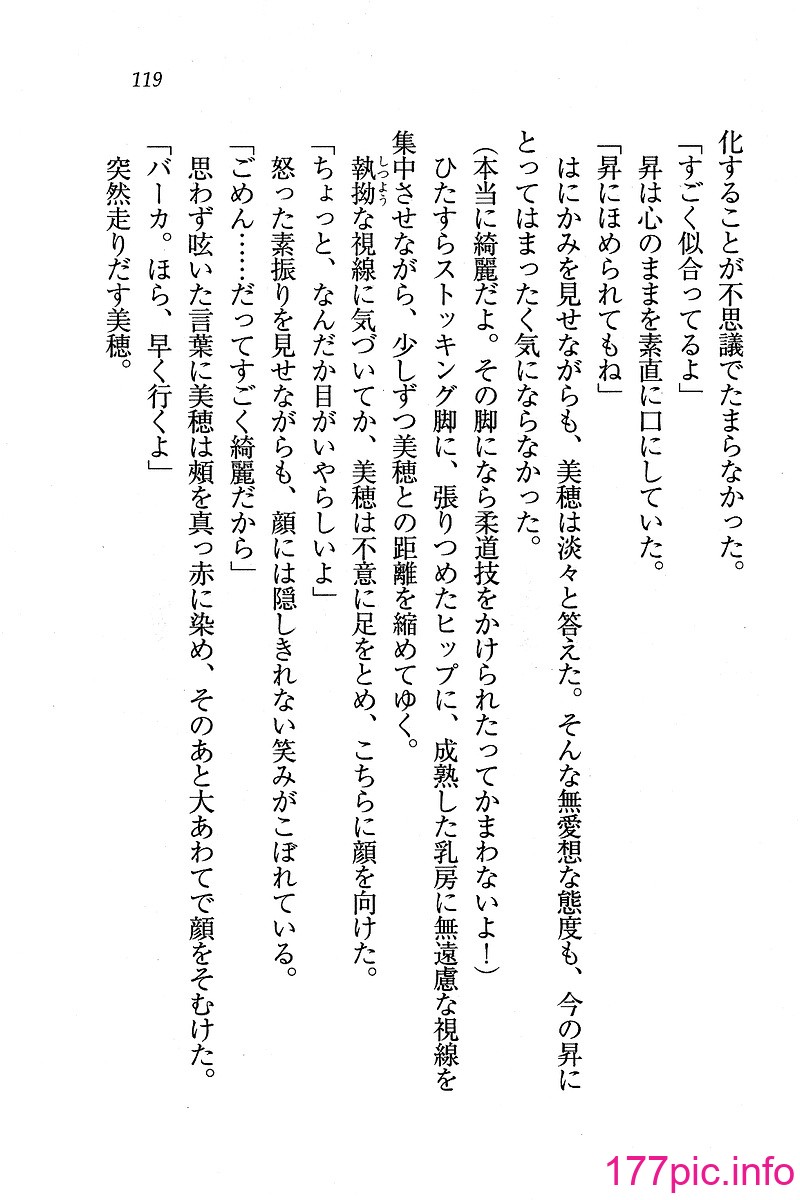 119
化することが不思議でたまらなかった。
「すごく似合ってるよ」
昇は心のままを素直に口にしていた。
「昇にほめられてもね」
はにかみを見せながらも、美穂は淡々と答えた。そんな無愛想な態度も、今の昇に
とってはまったく気にならなかった。
（本当に綺麗だよ。その脚になら柔道技をかけられたってかまわないよ！）
ひたすらストッキング脚に、張りつめたヒップに、成熟した乳房に無遠慮な視線を
集中させながら、少しずつ美穂との距離を縮めてゆく。
執拗な視線に気づいてか、美穂は不意に足をとめ、こちらに顔を向けた。
しつよう
「ちょっと、なんだか目がいやらしいよ」
怒った素振りを見せながらも、顔には隠しきれない笑みがこぼれている。
「ごめん……だってすごく綺麗だから」
思わず呟いた言葉に美穂は頰を真っ赤に染め、そのあと大あわてで顔をそむけた。
「バーカ。ほら、早く行くよ」
突然走りだす美穂。
177pic.info